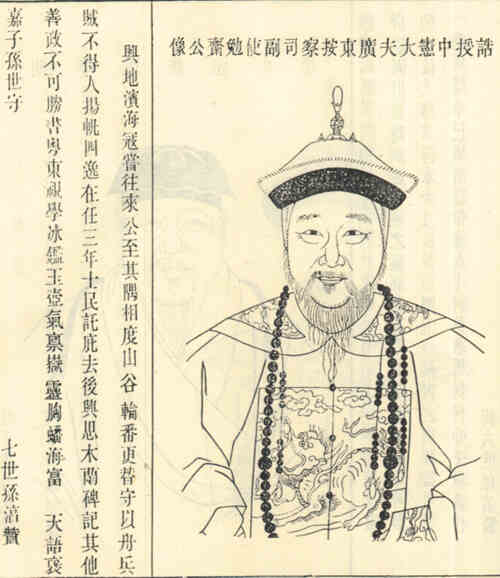 誥授中憲大夫廣東按察司副使勉齋公像
興地濱海冦嘗往來公至其隅相度山谷輪番更替守以舟兵
賊不得入揚帆四逸在任三年士民託庇去後興思木蘭碑記其他
善政不可勝書粤東視學冰鑑玉壺氣禀嶽靈胸蟠海富 天語褒
嘉子孫世守 七世孫贊